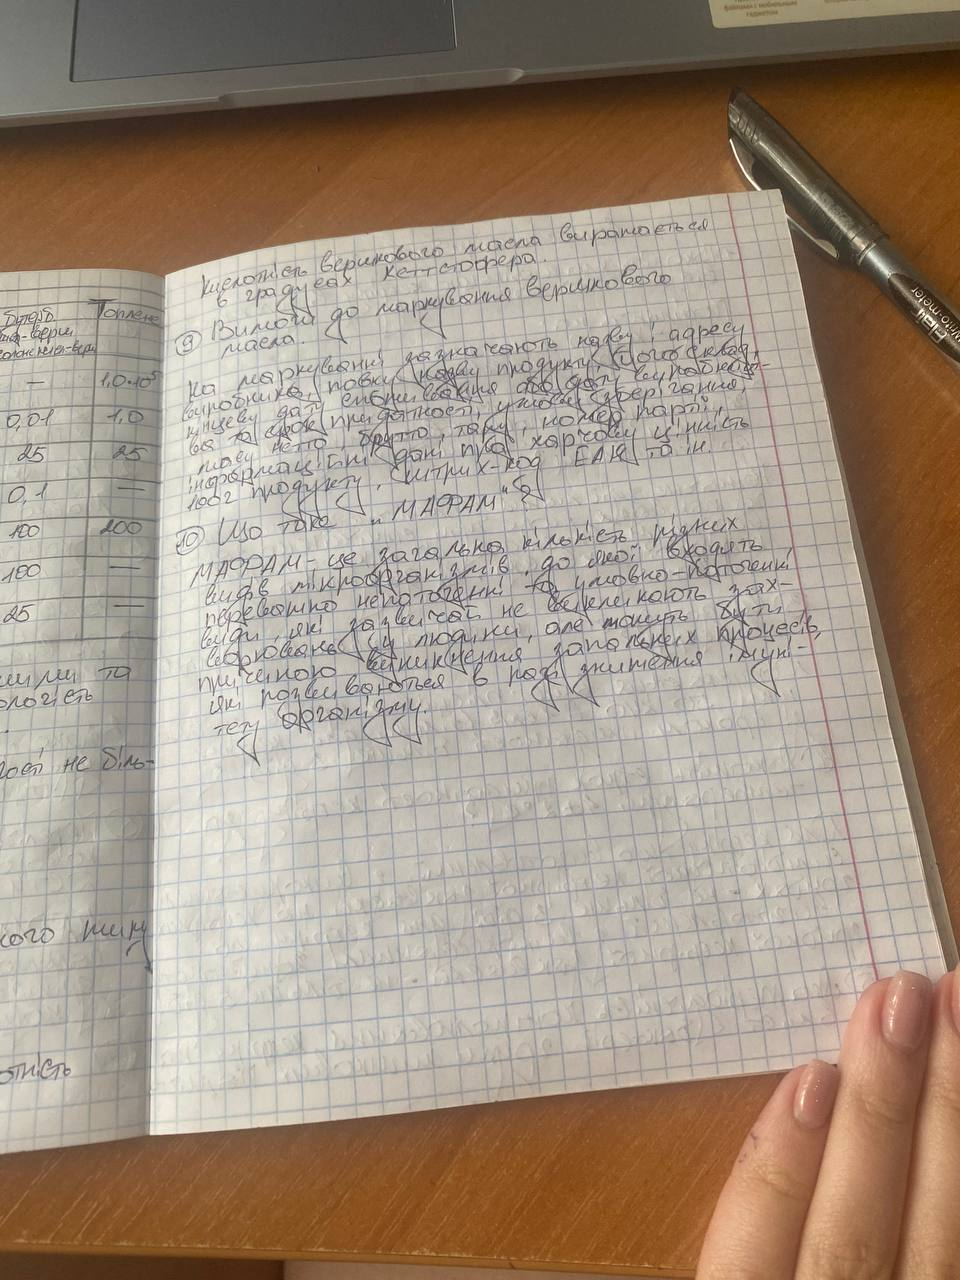 файлами с мобильным
гаджетом
Кислотність вершкового масла виражається
в градусах Кеттстофера.
9 Вимоги до маркування вершкового
масла.
На маркуванні зазначають назву і адресу
виробника, повну назву продукту, його склад,
кінцеву дату споживання або дату виробницт-
ва та срок придатності, умови зберігання,
масу нетто, брутто, тари, номер партії,
інформаційні дані про харчову цінність
100г продукту, штрих-код EAN та ін.
10 Що таке "МАФАМ"?
МАФАМ - це загальна кількість різних
видів мікроорганізмів, до якої входять
переважно непатогенні та умовно-патогенні
види, які зазвичай не викликають зах-
ворювань у людини, але можуть бути
причиною виникнення запальних процесів,
які розвиваються в разі зниження імуні-
тету організму.
Топлене
— 1,0·10⁵
0,01 1,0
25 25
0,1 —
100 200
100 —
25 —
та
гості не біль-
кого типу